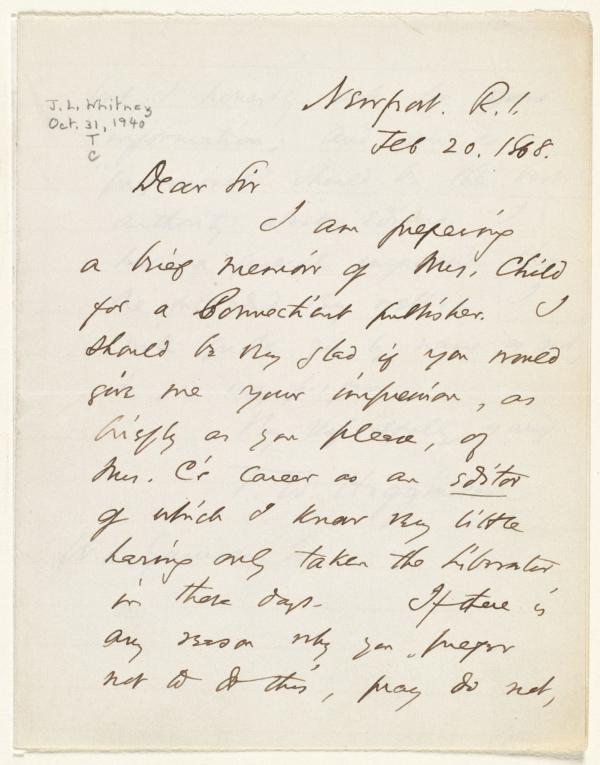 J. L. Whitney
Oct. 31, 1940
T
C
Newport. R. I.
Feb 20. 1868.
Dear Sir
I am preparing
a brief memoir of Mrs. Child
for a Connecticut publisher. I
should be very glad if you would
give me your impression, as
briefly as you please, of
Mrs. C's career as an editor
of which I know very little
having only taken the Liberator
in those days. If there is
any reason why you prefer
not to do this, pray do not,